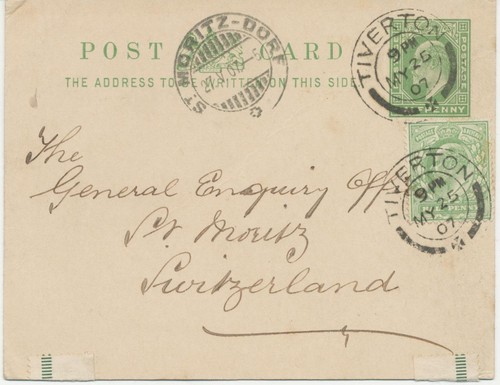 POST CARD
THE ADDRESS TO BE WRITTEN ON THIS SIDE
ST. MORITZ-DORF
TIVERTON
9 PM
MY 25
07
POSTAGE
PENNY
The
General Enquiry Off
St Moritz
Switzerland
TIVERTON
9 PM
MY 25
07